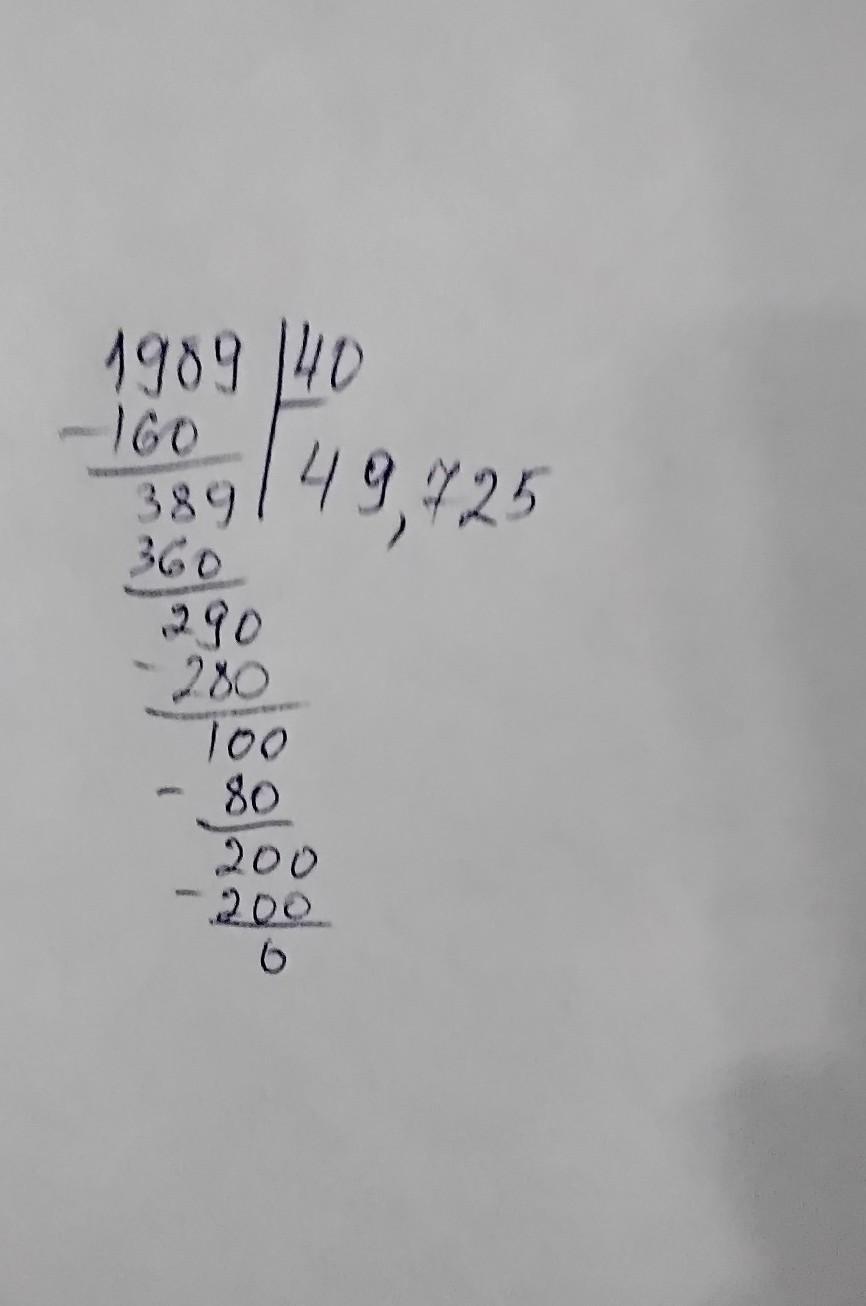 1989 40
-160
49,725
389
360
290
-280
100
- 80
200
-200
0